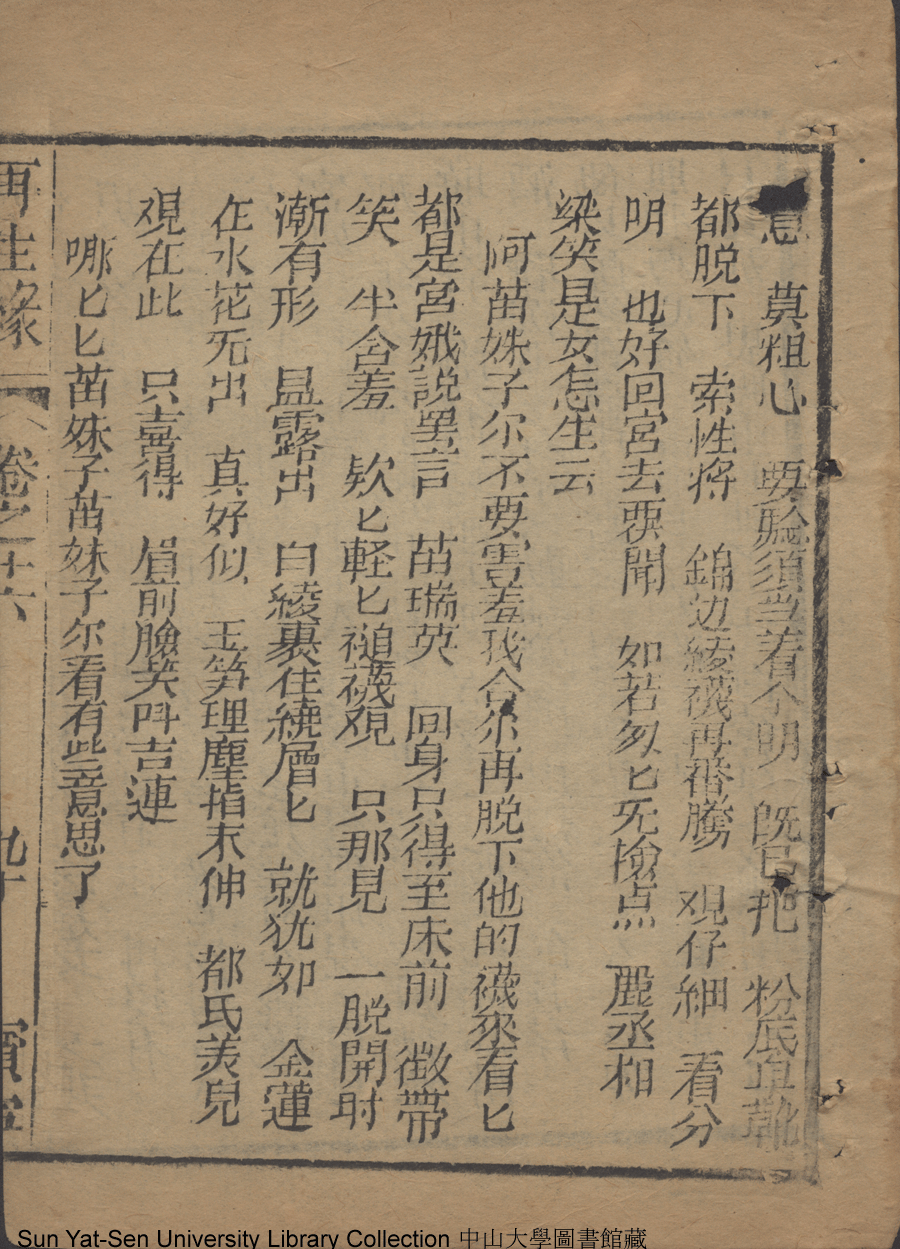 息　莫粗心　要驗須当着今明　既已把　粉底皂靴
都脱下　索性將　錦边綾襪再番騰　覌仔細　看分
明　也好回宮去覆聞　如若匆匕死撿点　麗丞相
梁笑是女怎生云
阿苗妹子尔不要害羞我合尔再脱下他的襪來看匕
都是宮娥說男言　苗瑞英　回身只得至床前　微帶
笑　半含羞　欵匕軽匕褪襪覌　只那見　一脱開时
漸有形　显露出　白綾裹住繞層匕　就犹如　金蓮
在水花死出　真好似　玉笋埋塵指末伸　都氏美兒
覌在此　只喜得　眉前臉笑呌吉連
哪匕匕苗妹子苗妹子尔看有些意思了
再生緣　卷之十六　九十
Sun Yat-Sen University Library Collection 中山大學圖書館藏